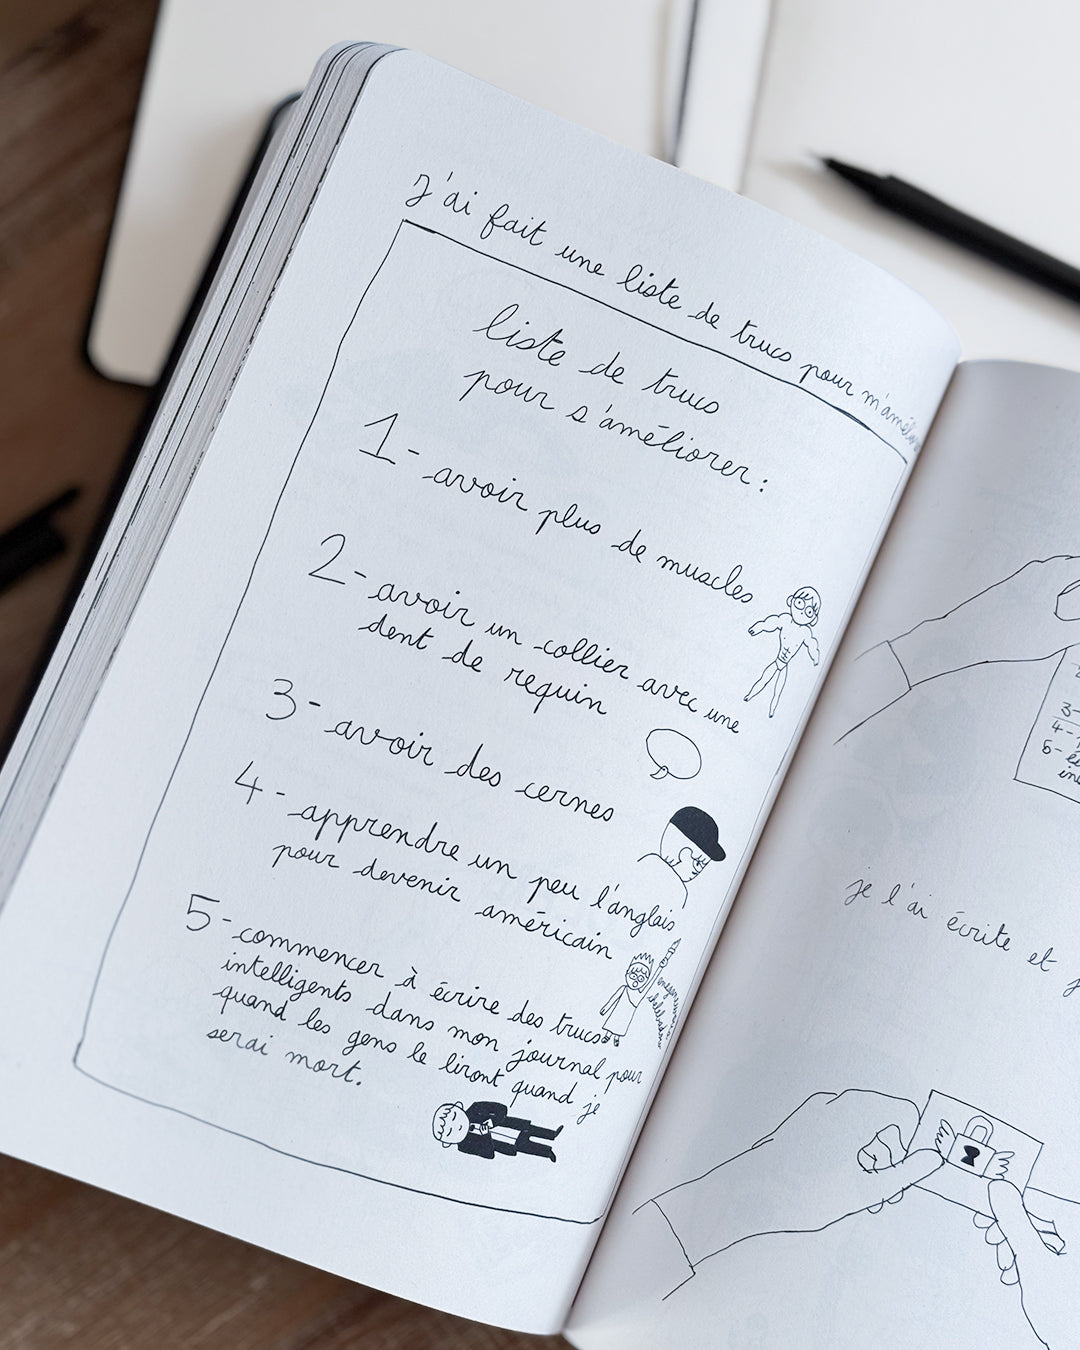 J'ai fait une liste de trucs pour
liste de trucs
pour s'améliorer :
1- avoir plus de muscles
2- avoir un collier avec une
dent de requin
3- avoir des cernes
4- apprendre un peu l'anglais
pour devenir américain
5- commencer à écrire des trucs
intelligents dans mon journal pour
quand les gens le liront quand je
serai mort.
3-
4-
5-
je l'ai écrite et